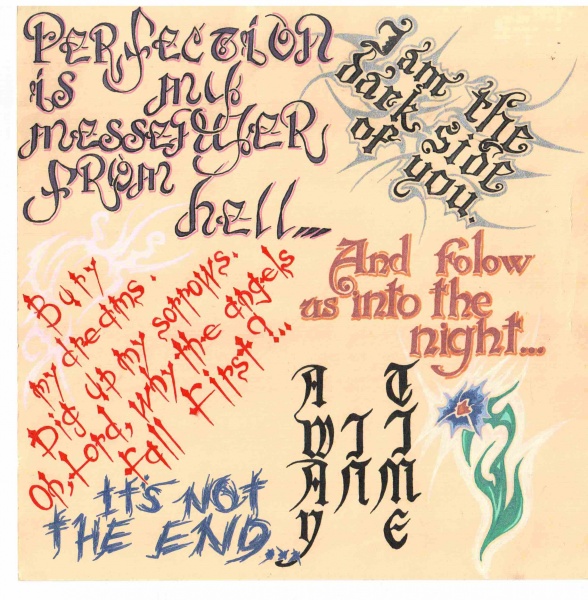 PERFECTION
is my
messenGER
FROM
hell...
I am the
dark side
of you.
Bury
my dreams.
Dig up my sorrows.
Oh, Lord, why the angels
Fall First?...
And folow
us into the
night...
AWAY
IN
TIME
IT'S NOT
THE END...